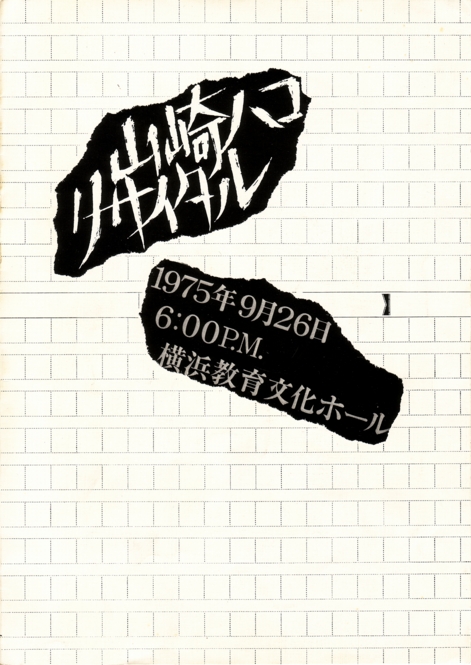 山崎ハコ
リサイタル
1975年9月26日
6:00P.M.
横浜教育文化ホール